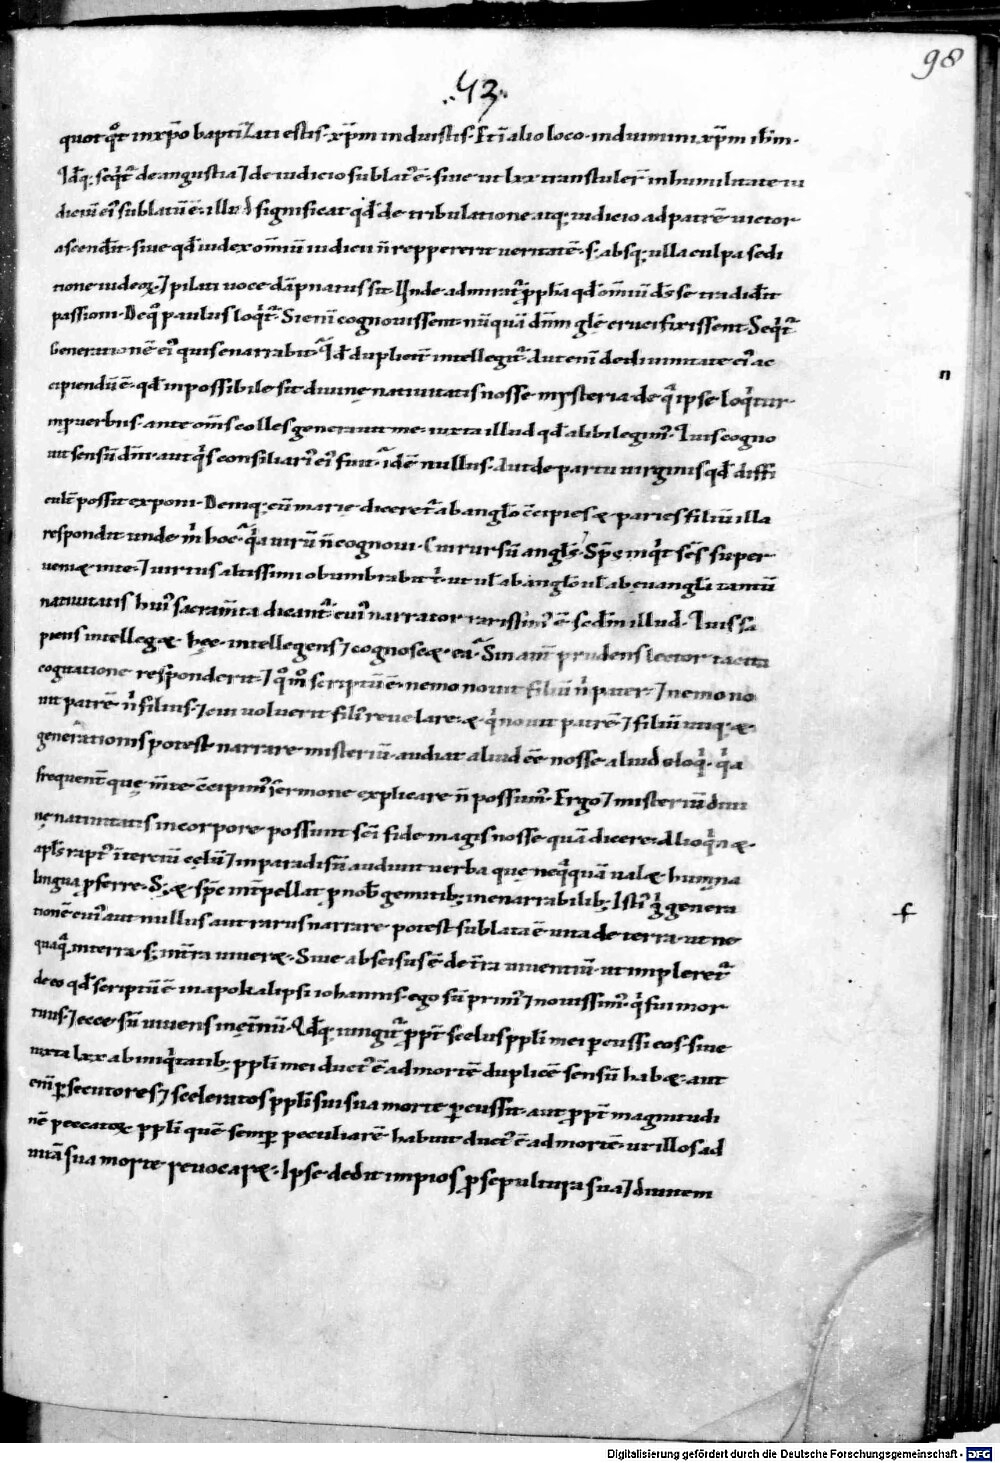 98
.43.
quot q̊t in xp̄o baptizati estis. xp̄m induistis. Et ī alio loco. induimini xp̄m ih̄m.
Id̄q; seqr̄t de angustia ⁊ de iudicio sublat᾽ ē. siue ut lxx transtuler̄ in humilitate iu
diciū ei᾽ sublatū ē. illud significat qd̄ de tribulatione atq; iudicio ad patrē uictor
ascendit. siue qd̄ iudex om̄iū iudicii n̄ reppererit ueritatē. s; absq; ulla culpa sedi
tione iudeoꝝ. ⁊ pilati uoce dāpnatus sit. Unde admirat̄ ꝓph̄a qd̄ om̄iū d̄s se tradidit
passioni. De q̊ paulus loqr̄t. Si enī cognouissent. nūquā dn̄m glē crucifixissent. Seqr̄t
Generationē ei᾽ quis enarrabit. Qd̄ dupliciter̄ intellegit̄. Aut enī de diuinitate ei᾽ ac
cipiendū ē. qd̄ inpossibile sit diuinę natiuitatis nosse mysteria. de q̄ ipse loqitur
in ꝓuerbiis. ante om̄s colles generauit me. iuxta illud qd̄ alibi legim᾽. Quis cogno
uit sensū dn̄i. aut qis consiliari᾽ ei᾽ fuit. idē nullus. Aut de partu uirginis qd̄ diffi
cult̄ possit exponi. Deniq; cū marię diceret̄ ab angl̄o c̄cipies & paries filiū illa
respondit unde m̄ hoc. qia uirū n̄ cognoui. Cui rursū angl̄s. Sp̄s inqit sc̄s super
ueni& in te. ⁊ uirtus altissimi obumbrabit t᾽. ut ul̄ ab angl̄o ul̄ ab euangl̄i tantū
natiuitatis hui᾽ sacram̄ta dicant̄. cui᾽ narrator rarissim᾽ ē. sed̄m illud. Quis sa
piens intelleg& hęc. intellegens ⁊ cognosc& ea. Sin aut̄ prudens lector tacita
cogitatione responderit. ⁊ q̊m̊ scriptū ē. nemo nouit filiū n̄ pater. ⁊ nemo no
uit patrē n̄ filius. ⁊ cui uoluerit fili᾽ reuelare. & qi nouit patrē ⁊ filiū utiq; &
generationis potest narrare misteriū. audiat aliud ēē nosse aliud eloqi. qia
frequent̄ quę m̄te c̄cipim᾽ sermone explicare n̄ possum᾽. Ergo ⁊ misteriū diui
nę natiuitatis in corpore possunt sc̄i fide magis nosse quā dicere. Alioqin &
apl̄s rapt᾽ in tertiū cęlū ⁊ in paradisū audiuit uerba quę neqiquā ual& humana
lingua ꝓferre. S; & sp̄c int̄pellat ꝓ nob̄ gemitib; inenarrabilib; Isti᾽ gi genera
tionē cui᾽ aut nullus aut rarus narrare potest sublata ē uita de terra. ut ne
quaq̄ in terra. s; int̄ra uiuer&. Siue abscisus ē de t̄ra uiuentiū. ut impleret̄
de eo qd̄ scriptū ē in apokalipsi iohannis. ego sū prim᾽ ⁊ nouissim᾽. qi fui mor
tuus. ⁊ ecce sū uiuens in ęt̄nū. Qd̄q; iungit̄ ꝓpt̄ scelus ppl̄i mei ꝑcussi eos. siue
iuxta lxx ab iniqitatib; ppl̄i mei duct᾽ ē ad mortē duplicē sensū hab&. aut
enī ꝑsecutores ⁊ sceleratos ppl̄i sui sua morte ꝑcussit. aut ꝓpt̄ magnitudi
nē peccatoꝝ ppl̄i quē semꝑ peculiarē habuit duct᾽ ē ad mortē. ut illos ad
uitā sua morte reuocar&. Ipse dedit impios ꝓ sepultura sua ⁊ diuitem
Digitalisierung gefördert durch die Deutsche Forschungsgemeinschaft - DFG